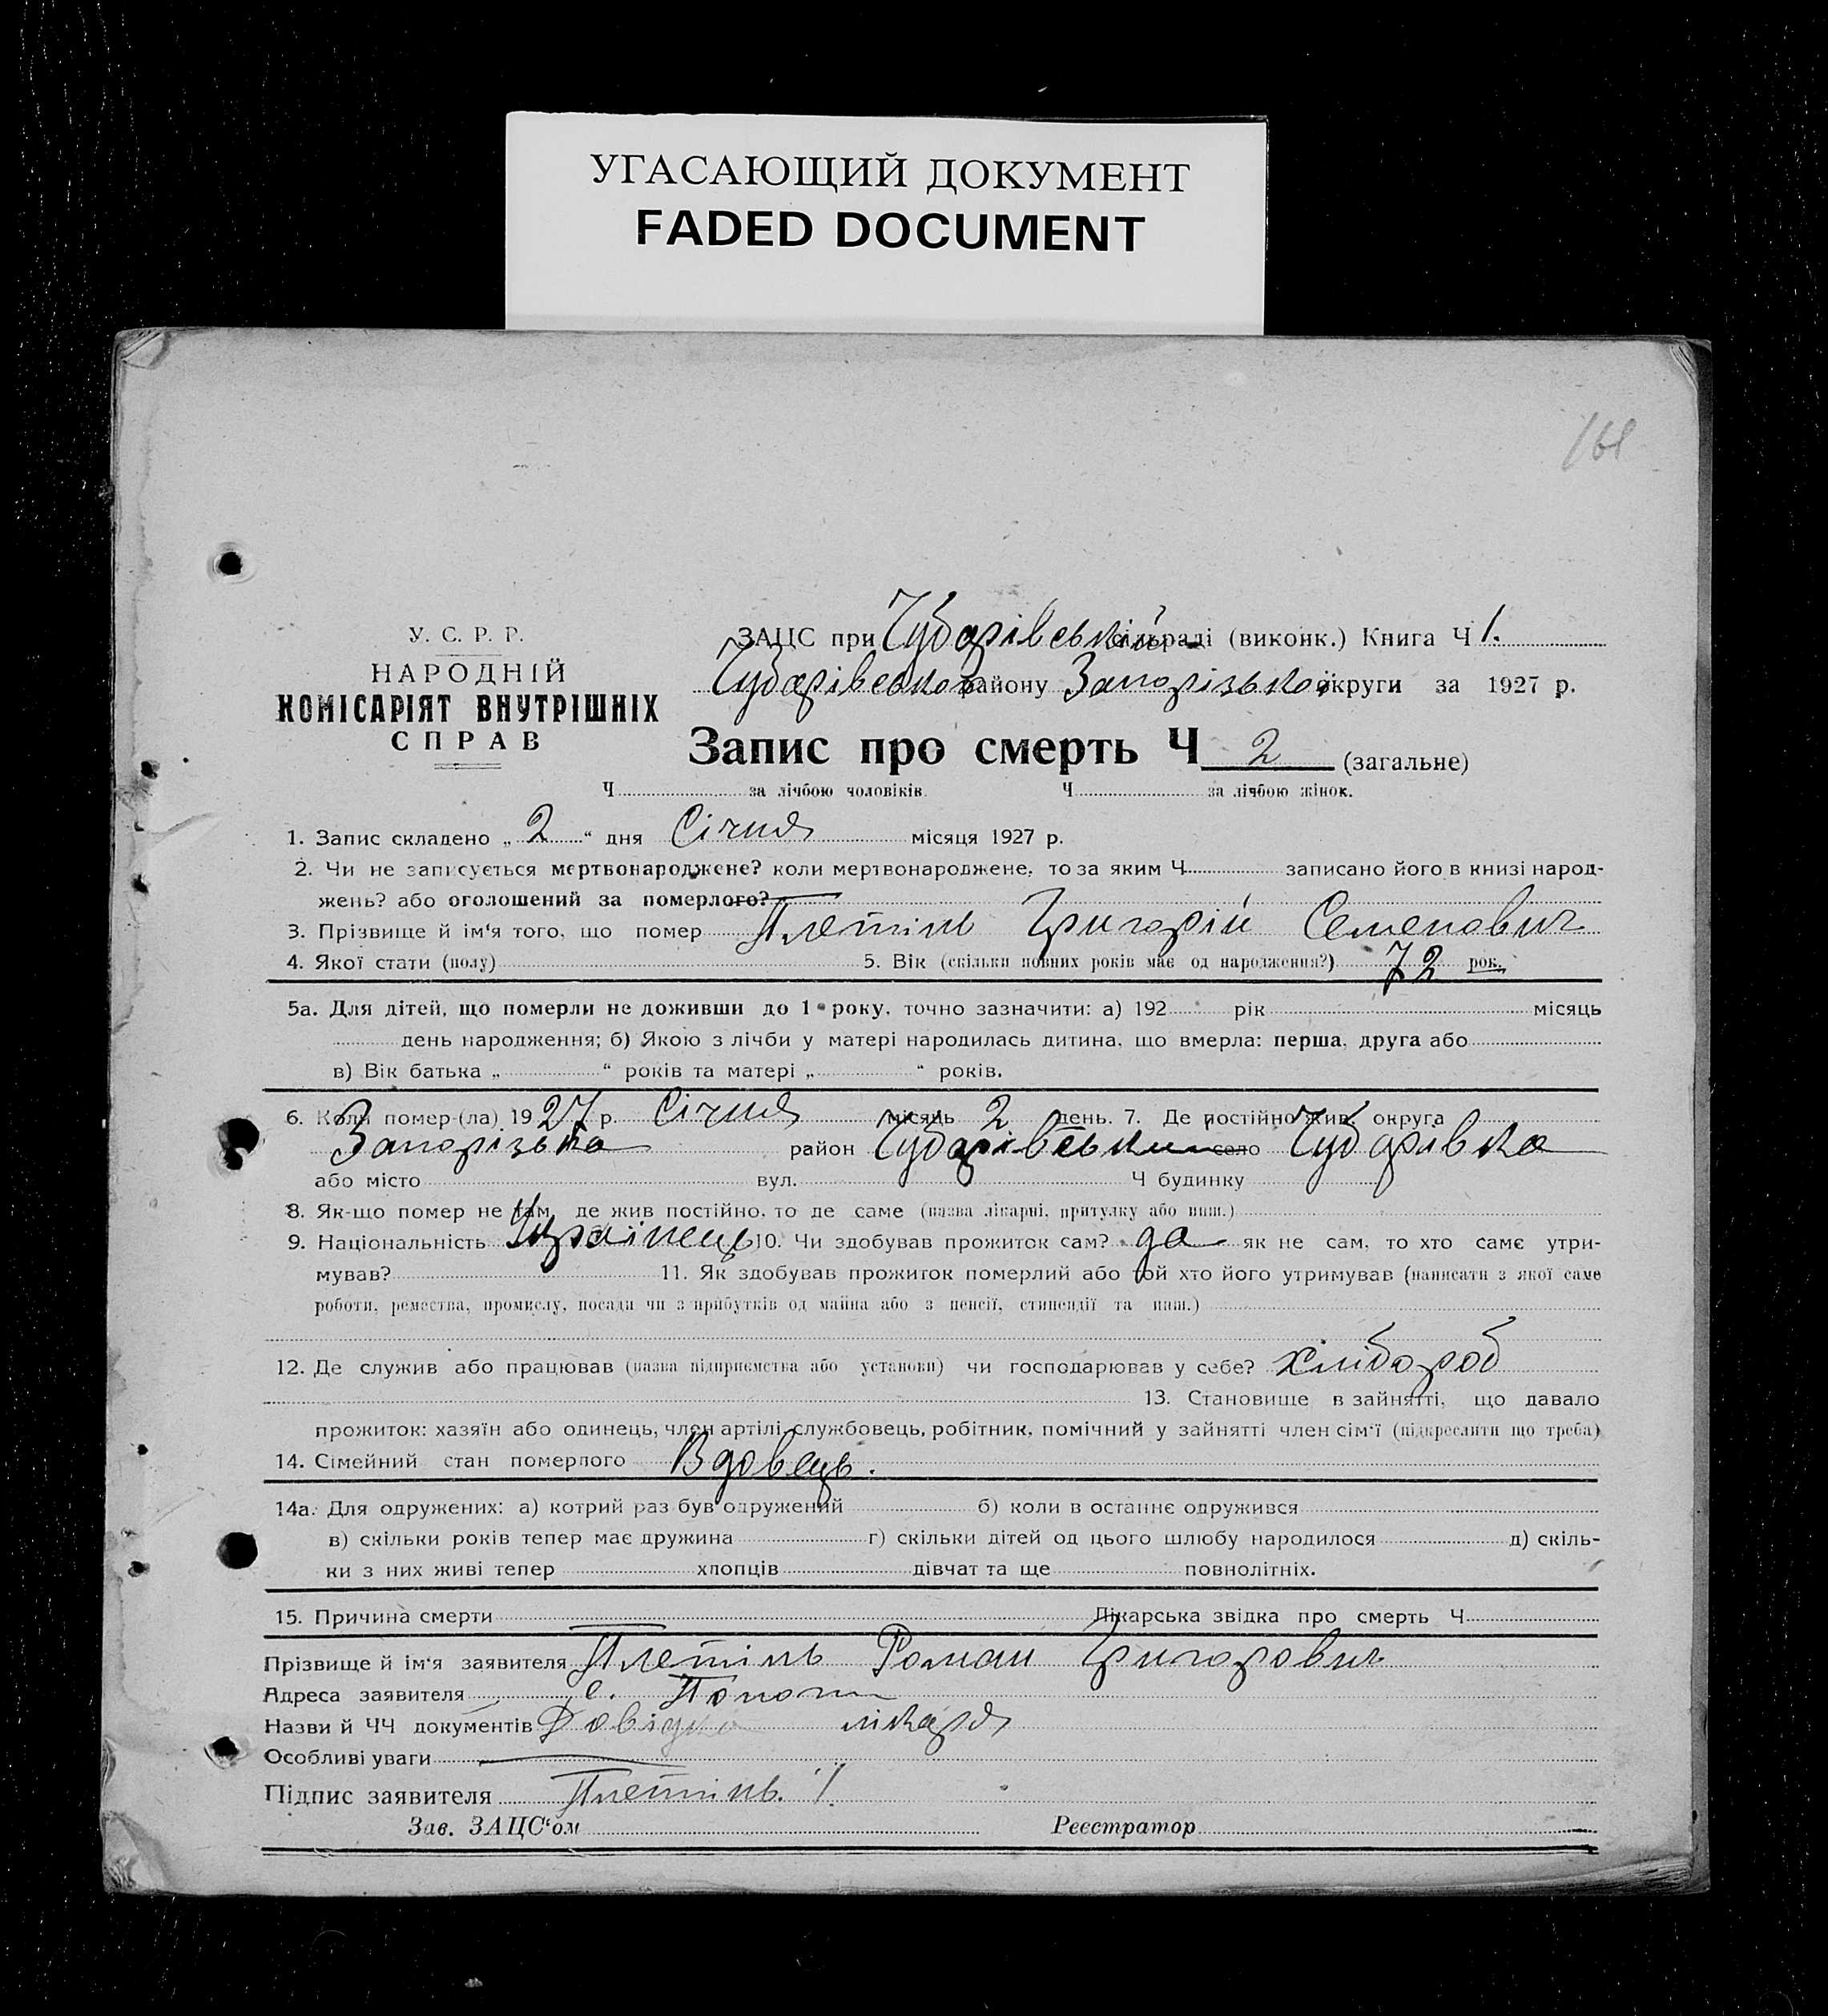 УГАСАЮЩИЙ ДОКУМЕНТ
FADED DOCUMENT
У. С. Р. Р.
НАРОДНІЙ
КОМІСАРІЯТ ВНУТРІШНІХ
СПРАВ
ЗАЦС при Чубарівській сільраді (виконк.) Книга Ч 1.
Чубарівського району Запорізької округи за 1927 р.
Запис про смерть Ч 2 (загальне)
Ч за лічбою чоловіків. Ч за лічбою жінок.
1. Запис складено „ 2 “ дня Січня місяця 1927 р.
2. Чи не записується мертвонароджене? коли мертвонароджене, то за яким Ч записано його в книзі народ-
жень? або оголошений за померлого?
3. Прізвище й ім‘я того, що помер Плетінь Григорій Семенович
4. Якої стати (полу) 5. Вік (скільки повних років має од народження?) 72 рок.
5а. Для дітей, що померли не доживши до 1 року, точно зазначити: а) 192 рік місяць
день народження; б) Якою з лічби у матері народилась дитина, що вмерла: перша, друга або
в) Вік батька „ “ років та матері „ “ років.
6. Коли помер-(ла) 1927 р. Січня місяць 2 день. 7. Де постійно жив: округа
Запорізька район Чубарівський село Чубарівка
або місто вул. Ч будинку
8. Як-що помер не там, де жив постійно, то де саме (назва лікарні, притулку або инш.)
9. Національність Українець 10. Чи здобував прожиток сам? да як не сам, то хто саме утри-
мував? 11. Як здобував прожиток померлий або той хто його утримував (написати з якої саме
роботи, ремества, промислу, посади чи з прибутків од майна або з пенсії, стипендії та инш.)
12. Де служив або працював (назва підприємства або установи) чи господарював у себе? хлібороб
13. Становище в зайнятті, що давало
прожиток: хазяїн або одинець, член артілі, службовець, робітник, помічний у зайнятті член сім‘ї (підкреслити що треба)
14. Сімейний стан померлого Вдовець.
14а. Для одружених: а) котрий раз був одружений б) коли в останнє одружився
в) скільки років тепер має дружина г) скільки дітей од цього шлюбу народилося д) скіль-
ки з них живі тепер хлопців дівчат та ще повнолітніх.
15. Причина смерти Лікарська звідка про смерть Ч
Прізвище й ім‘я заявителя Плетінь Роман Григорович
Адреса заявителя с.
Назви й ЧЧ документів Довідка лікаря
Особливі уваги
Підпис заявителя Плетінь.
Зав. ЗАЦС‘ом Реєстратор